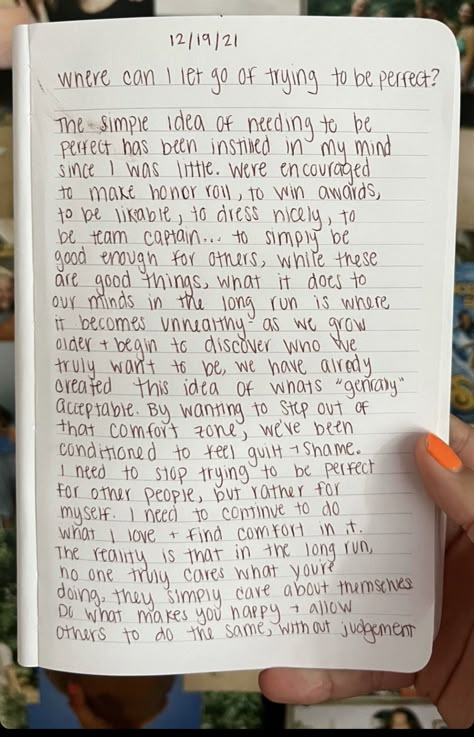 12/19/21
where can I let go of trying to be perfect?
The simple idea of needing to be
perfect has been instilled in my mind
since I was little. Were encouraged
to make honor roll, to win awards,
to be likable, to dress nicely, to
be team captain... to simply be
good enough for others, while these
are good things, what it does to
our minds in the long run is where
it becomes unhealthy - as we grow
older + begin to discover who we
truly want to be, we have alredy
created this idea of whats "genrally"
acceptable. By wanting to step out of
that comfort zone, we've been
conditioned to feel guilt + shame.
I need to stop trying to be perfect
for other people, but rather for
myself. I need to continue to do
what I love + find comfort in it.
The reality is that in the long run,
no one truly cares what you're
doing, they simply care about themselves
Do what makes you happy + allow
others to do the same, without judgement